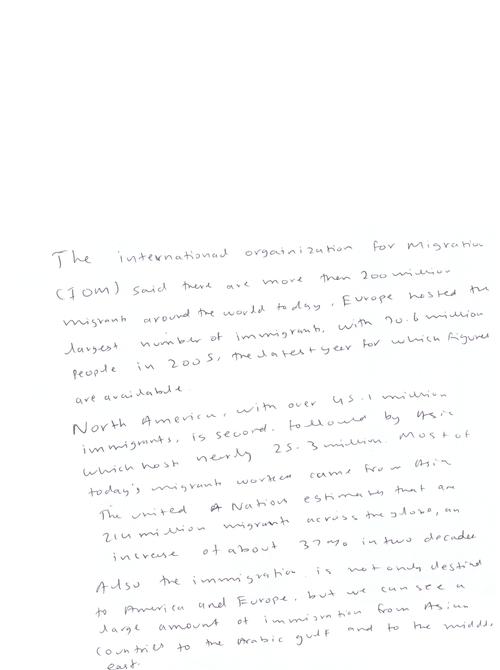 The international orgainization for Migration
(IOM) said there are more then 200 million
migrant around the world today. Europe hosted the
largest number of immigrant, with 70.6 million
people in 2005, the latest year for which figures
are available.
North America, with over 45.1 million
immigrants, is second. followed by Asia
which host nearly 25.3 million. Most of
today's migrant workers came from Asia
The united Nation estimates that an
214 million migrant across the globe, an
increase of about 37% in two decades
Also the immigration is not only destind
to America and Europe, but we can see a
large amount of immigration from Asian
Countries to the Arabic gulf and to the middle
east.